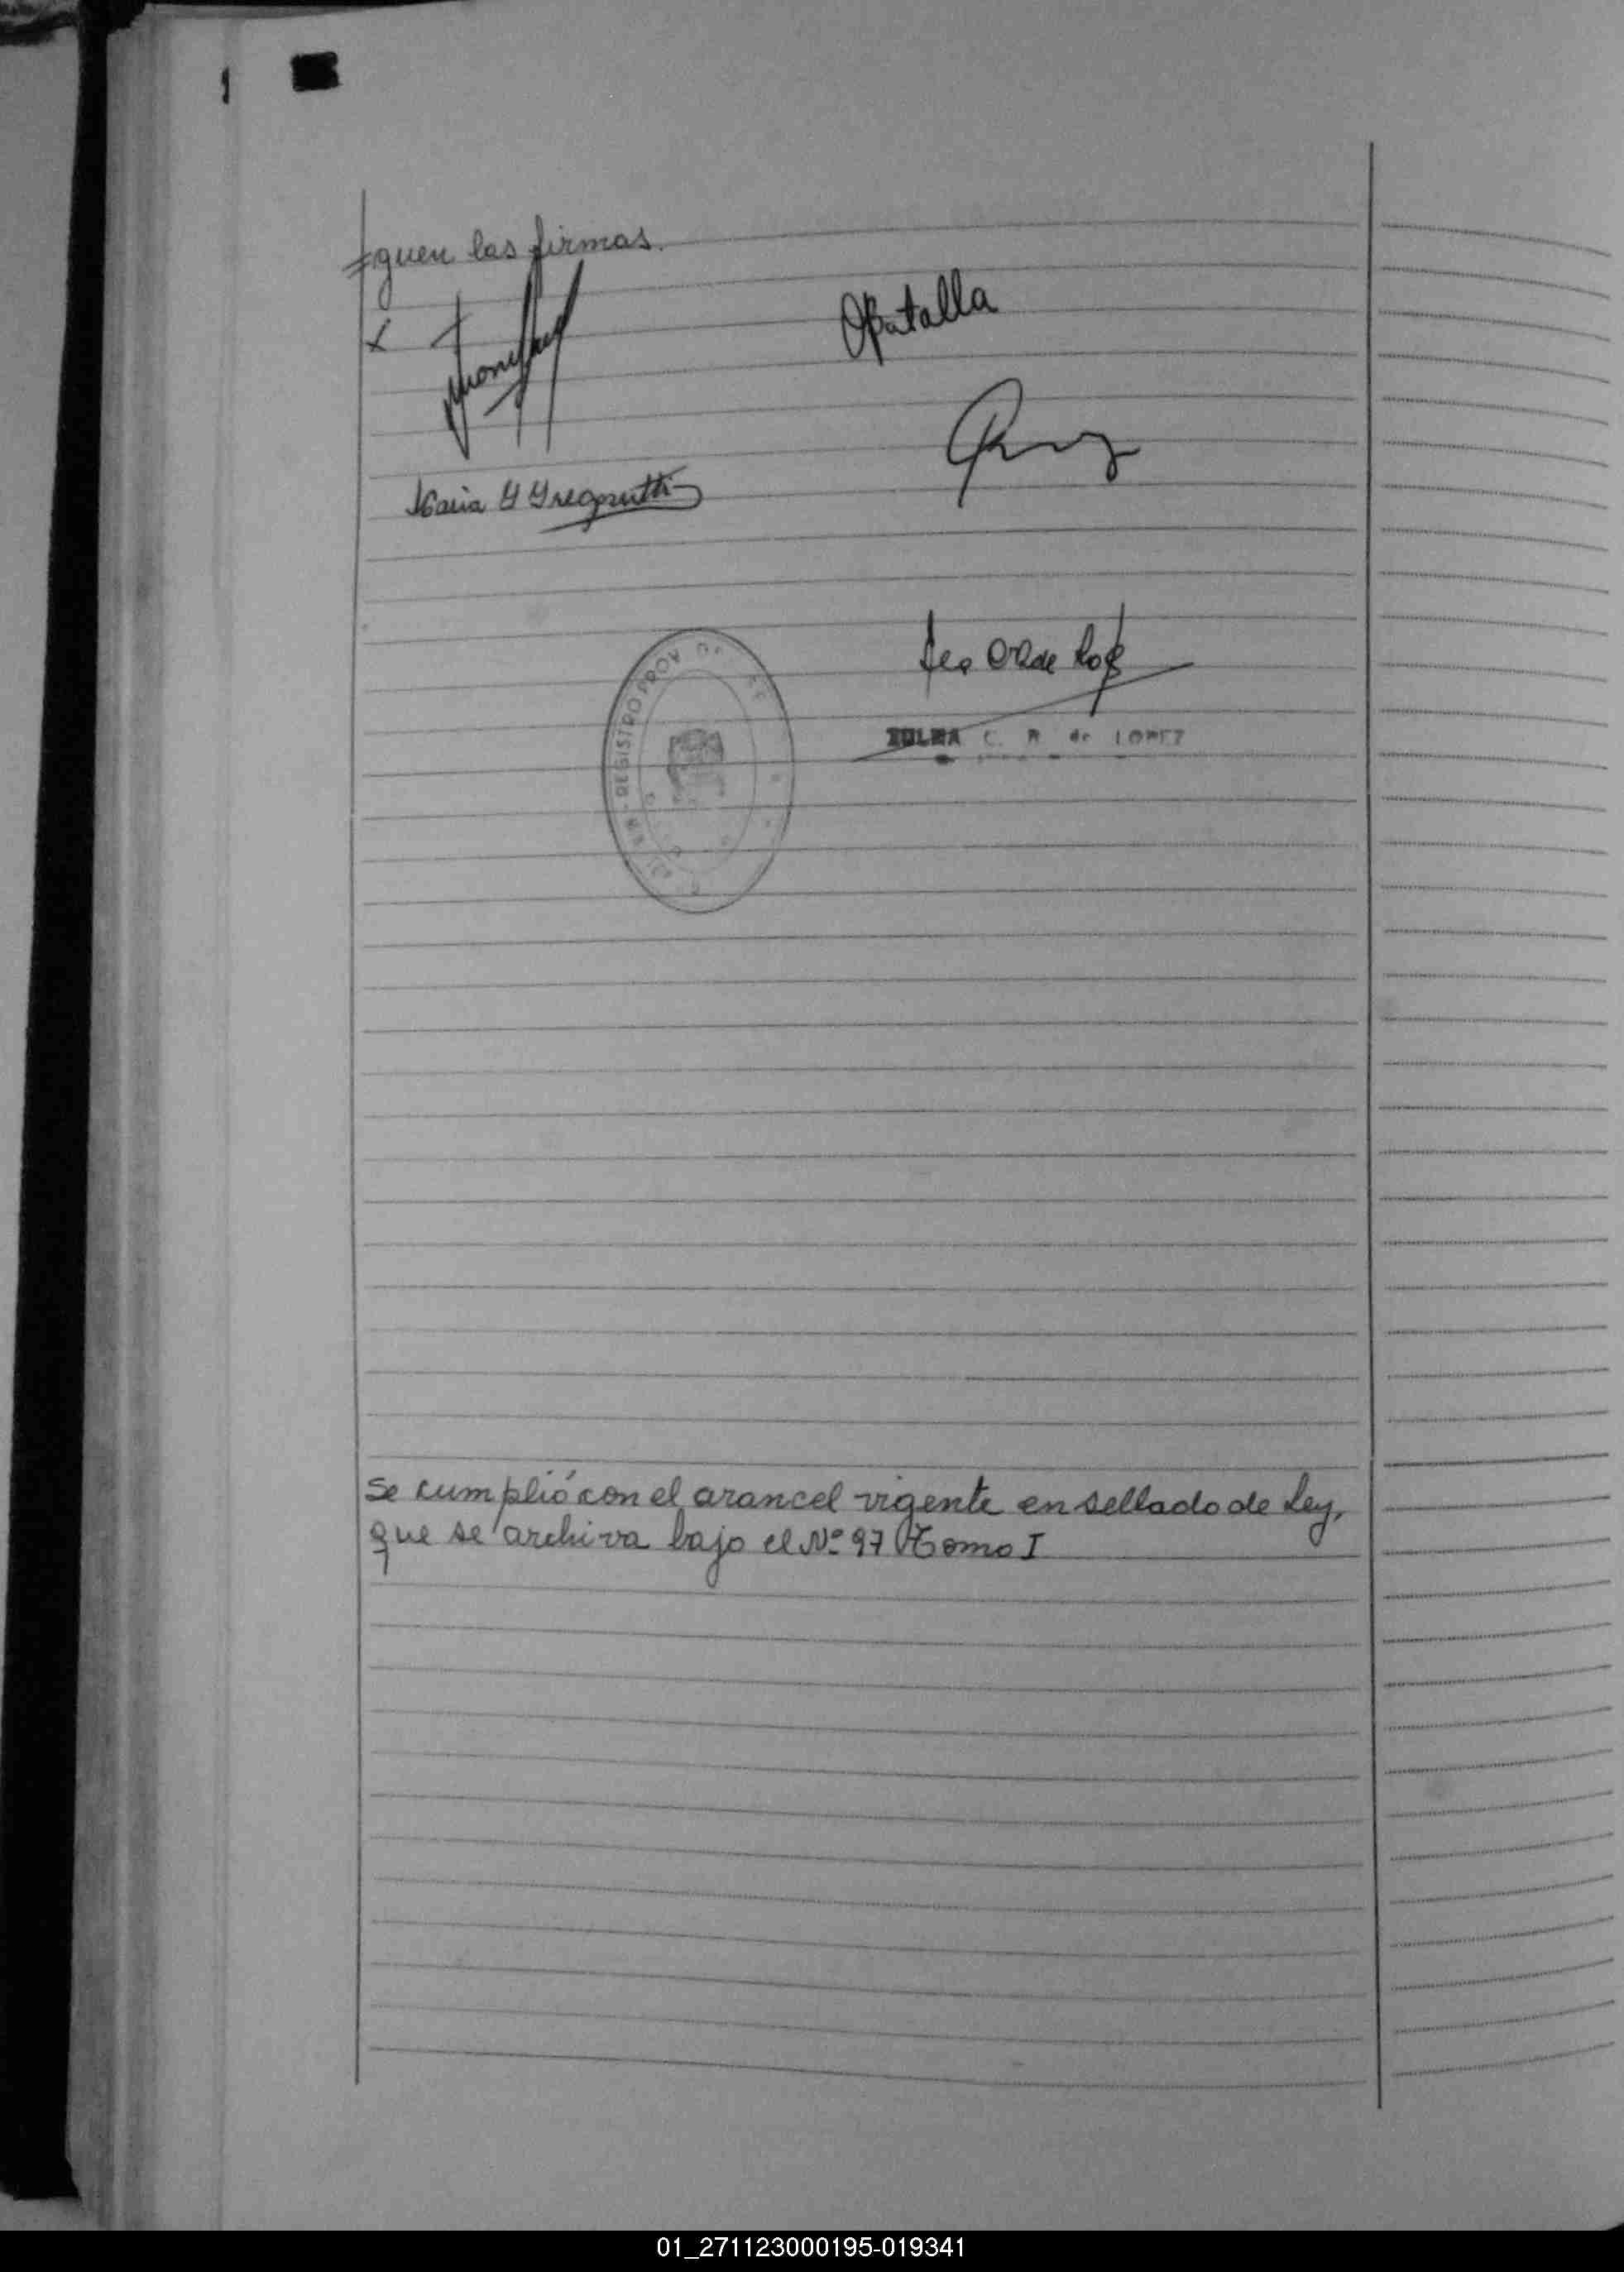 guen las firmas.
OBatalla
Maria Y Gregorutti
REGISTRO PROV
ZULMA C. R. de LOPEZ
Se cumplió con el arancel vigente en sellado de Ley,
que se archiva bajo el Nº 97 Tomo I
01_271123000195-019341